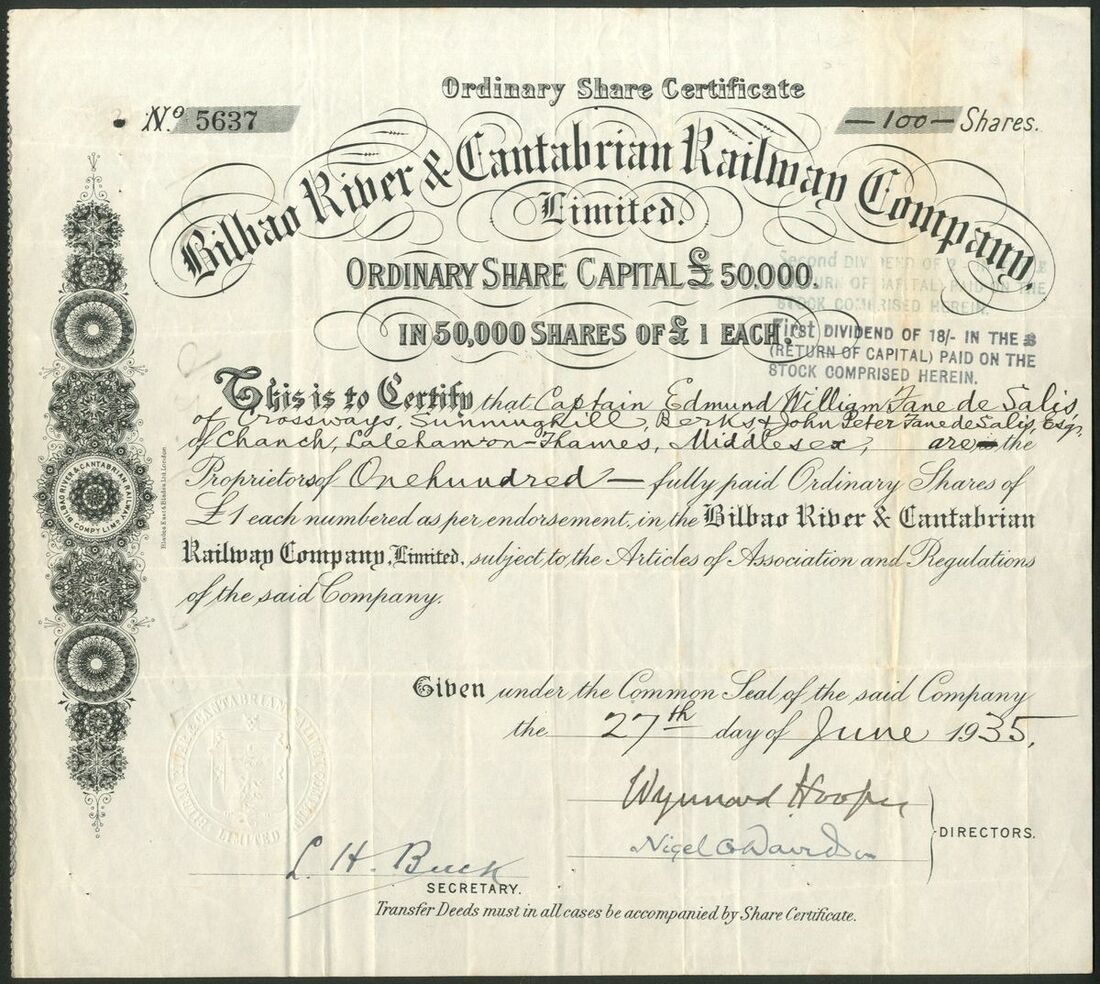 Ordinary Share Certificate
No. 5637
—100— Shares.
Bilbao River & Cantabrian Railway Company,
Limited.
ORDINARY SHARE CAPITAL £50.000.
IN 50,000 SHARES OF £1 EACH.
Second DIVIDEND OF
(RETURN OF CAPITAL) PAID ON THE
STOCK COMPRISED HEREIN.
First DIVIDEND OF 18/- IN THE £
(RETURN OF CAPITAL) PAID ON THE
STOCK COMPRISED HEREIN.
This is to Certify that Captain Edmund William Fane de Salis,
of Crossways, Sunninghill, Berks & John Peter Fane de Salis, Esqr.
of Laleham-on-Thames, Middlesex, are the
Proprietors of One hundred — fully paid Ordinary Shares of
£1 each numbered as per endorsement, in the Bilbao River & Cantabrian
Railway Company, Limited, subject to the Articles of Association and Regulations
of the said Company.
BILBAO RIVER & CANTABRIAN RAILWAY
COMPY LIMD
Blades East & Blades Ltd. London
Given under the Common Seal of the said Company
the 27th day of June 1935.
BILBAO RIVER & CANTABRIAN RAILWAY COMPANY
LIMITED
Wynnard Hooper
Nigel G Davidson
DIRECTORS.
L. H. Buck
SECRETARY.
Transfer Deeds must in all cases be accompanied by Share Certificate.